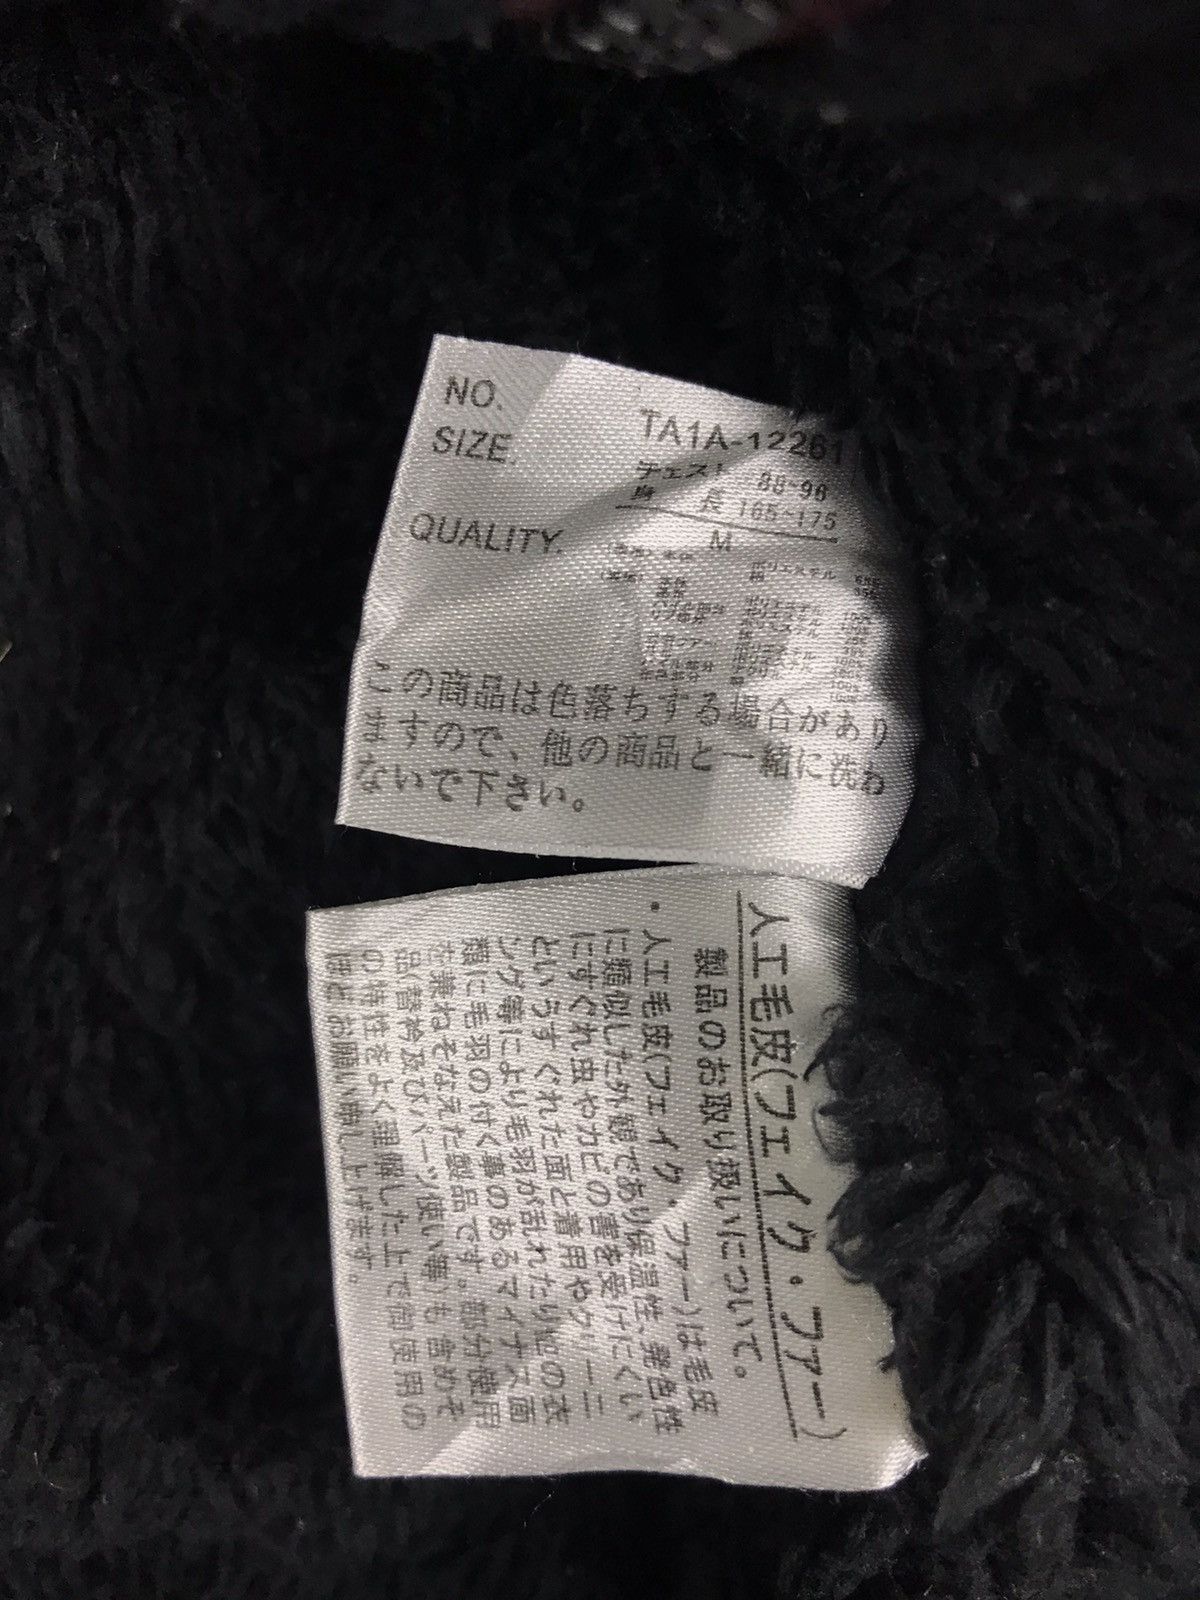 NO. TA1A-12261
SIZE. チェスト 88~96
身 長 165~175
M
QUALITY.
この商品は色落ちする場合があり
ますので、他の商品と一緒に洗わ
ないで下さい。
人工毛皮(フェイク・ファー)
製品のお取り扱いについて。
・人工毛皮(フェイク・ファー)は毛皮
に類似した外観であり保温性、発色性
にすぐれ虫やカビの害を受けにくい
というすぐれた面と着用やクリーニ
ング等により毛羽が乱れたり他の衣
類に毛羽の付く事のあるマイナス面
を兼ねそなえた製品です。部分使用
品(替衿及びパーツ使い等)も含めそ
の特性をよく理解した上で御使用の
程とお願い申し上げます。